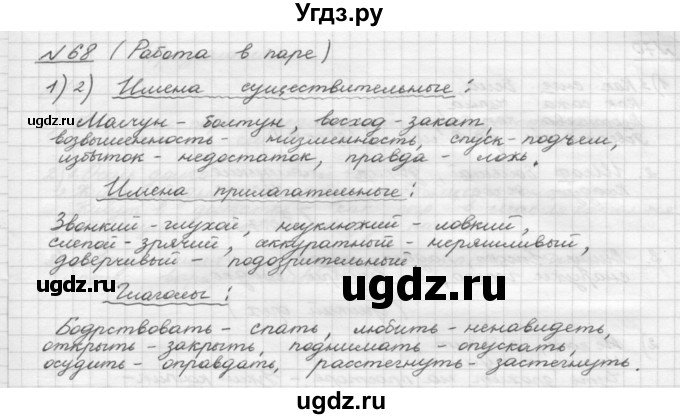 Угдз.ру
№68 (Работа в паре)
1) 2) Имена существительные:
Молчун - болтун, восход - закат,
возвышенность - низменность, спуск - подъем,
избыток - недостаток, правда - ложь.
Имена прилагательные:
Звонкий - глухой, неуклюжий - ловкий,
слепой - зрячий, аккуратный - неряшливый,
доверчивый - подозрительный
Глаголы:
Бодрствовать - спать, любить - ненавидеть,
открыть - закрыть, поднимать - опускать,
осудить - оправдать, расстегнуть - застегнуть.
ugdz.ru
ugdz.ru
ugdz.ru
ugdz.ru
ugdz.ru
ugdz.ru
ugdz.ru